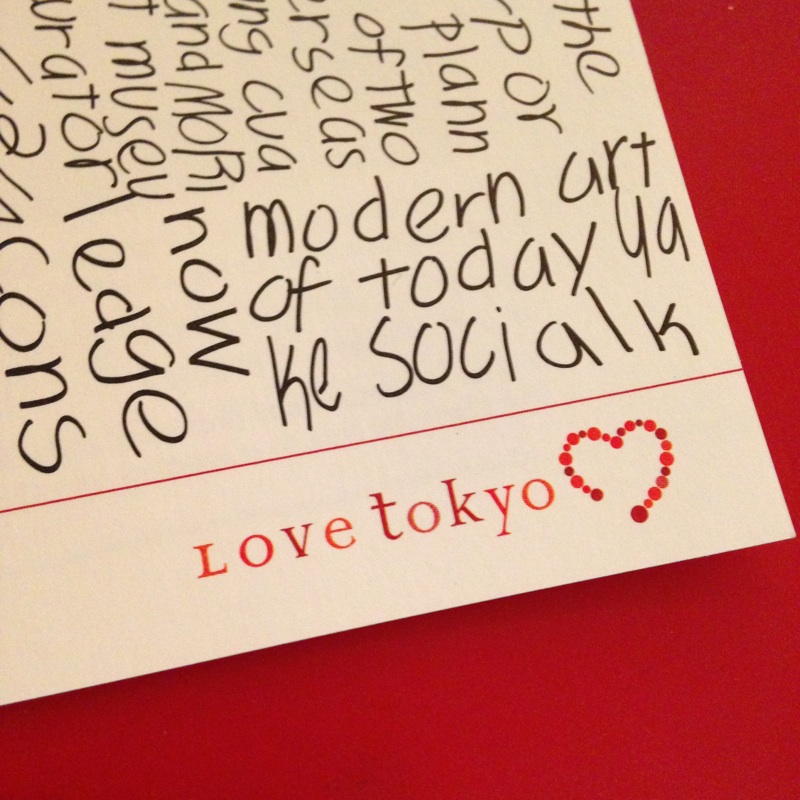 the
rp or
plann
of two
erseas
ng cva
and MORI
t museu
urator
modern art
of today ya
ke social k
now
ledge
cons
Love tokyo